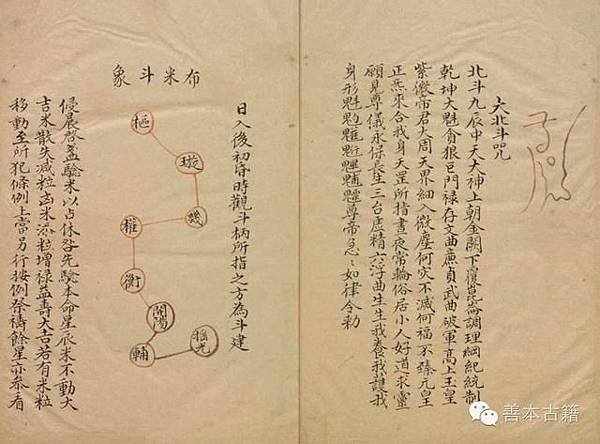 大北斗咒
北斗九辰中天大神上朝金闕下覆崑崙調理綱紀統制
乾坤大魁貪狼巨門祿存文曲廉貞武曲破軍高上玉皇
紫微帝君大周天界細入微塵何灾不滅何福不臻元皇
正炁來合我身天罡所指晝夜常輪俗居小人好道求靈
願見尊儀永保長生三台虛精六淳曲生生我養我護我
身形魁𩲃䰢魓䰣尊帝急〻如律令勅
布米斗象
樞
璇
璣
權
衡
開陽
輔
搖光
日入後初昏時觀斗柄所指之方為斗建
侵晨啓葢驗米以占休咎先驗本命星辰米不動大
吉米散失減粒凶米添粒增祿益壽大吉若有米粒
移動至所犯條例上當另行按例祭禱餘星亦參看
善本古籍